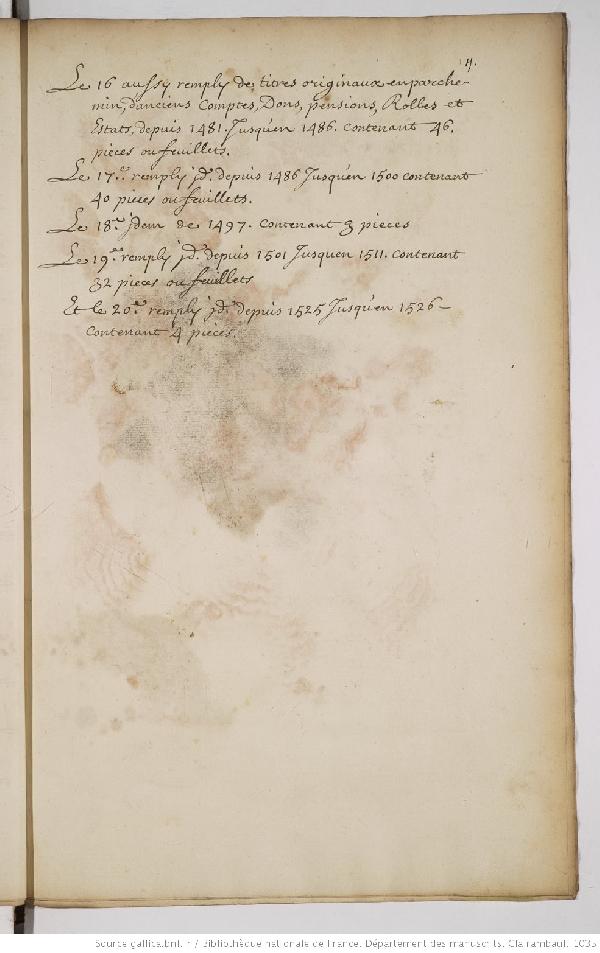 4.
Le 16 aussy remply de titres originaux en parche-
min, d'anciens Comptes, Dons, pensions, Rolles et
Estats, depuis 1481. Jusqu'en 1486. contenant 46.
pieces ou feuillets.
Le 17.e remply jd. depuis 1486 Jusqu'en 1500 contenant
40 pieces ou feuillets.
Le 18.e jdem de 1497. contenant 3 pieces
Le 19.e remply jd. depuis 1501 Jusqu'en 1511. contenant
32 pieces ou feuillets
Et le 20.e remply jd. depuis 1525 Jusqu'en 1526 -
contenant 4 pieces.
Source gallica.bnf.fr / Bibliothèque nationale de France. Département des manuscrits. Clairambault 1035